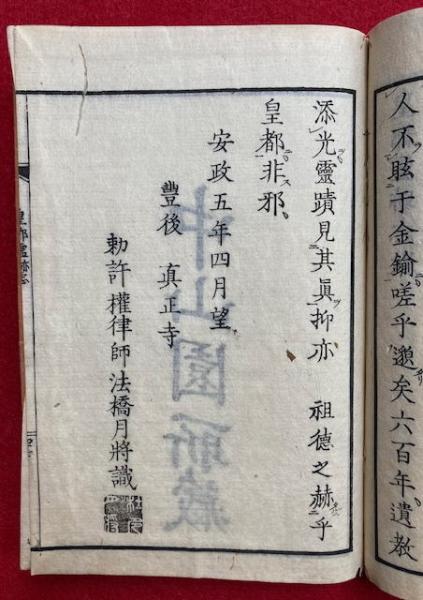 人不眩于金鍮嗟乎邈矣六百年遺教
添光靈蹟見其眞抑亦　祖德之赫乎
皇都非邪
安政五年四月望
豐後　真正寺
勅許權律師法橋月將識
中山園所藏